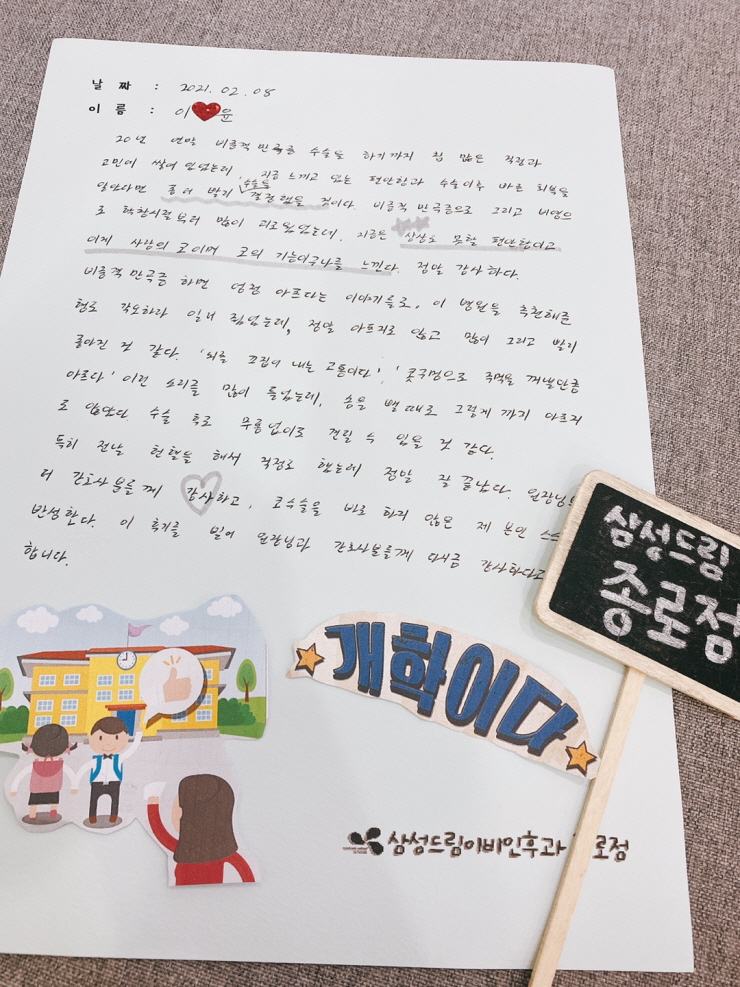 날 짜 : 2021. 02. 08
이 름 : 이 윤
20년 연말 비중격 만곡증 수술을 하기까지 참 많은 걱정과
고민이 쌓여 있었는데, 지금 느끼고 있는 편안함과 수술이후 빠른 회복을
알았다면 좀 더 빨리 수술을 결정했을 것이다. 비중격 만곡증으로 그리고 비염으
로 학창시절부터 많이 괴로웠었는데, 지금은 상상도 못할 편안함이고
이게 사람의 코이며 코의 기능이구나를 느낀다. 정말 감사하다.
비중격 만곡증 하면 엄청 아프다는 이야기들로, 이 병원을 추천해준
형도 각오하라 일러 줬었는데, 정말 아프지도 않고 많이 그리고 빨리
좋아진 것 같다. '뇌를 끄집어 내는 고통이다', '콧구멍으로 주먹을 꺼낼만큼
아프다' 이런 소리를 많이 들었는데, 솜을 뺄 때도 그렇게 까지 아프지
도 않았다. 수술 후로 무릎 없이도 견딜 수 있을 것 같다.
특히 전날 헌혈을 해서 걱정도 했는데 정말 잘 끝났다. 원장님
더 간호사분들께 감사하고, 코수술을 바로 하지 않은 제 본인 스스
반성한다. 이 후기를 빌어 원장님과 간호사분들께 다시금 감사하다고
합니다.
삼성드림
종로점
개학이다
삼성드림이비인후과 로점